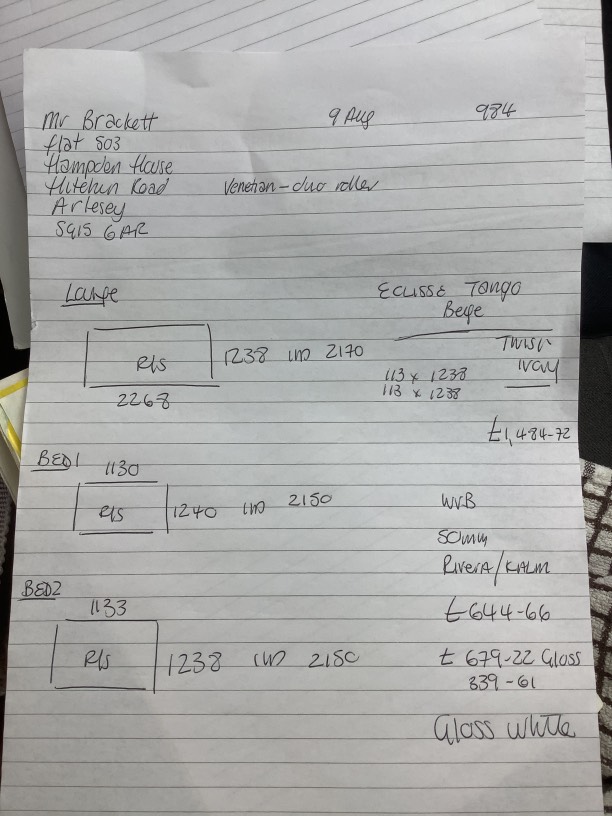 Mr Brackett 9 Aug 984
flat 503
Hampden House
Hitchin Road Venetian-duo roller
Arlesey
SG15 6AR
Lounge ECLISSE Tango
Beige
R/S 1238 2170 Twist
Ivory
2268 113 x 1238
113 x 1238
£1,484-72
BED1 1130
R/S 1240 2150 WVB
50mm
RIVERA/KALM
BED2
1133 £644-66
R/S 1238 2150 £679-22 Gloss
339-61
Gloss white